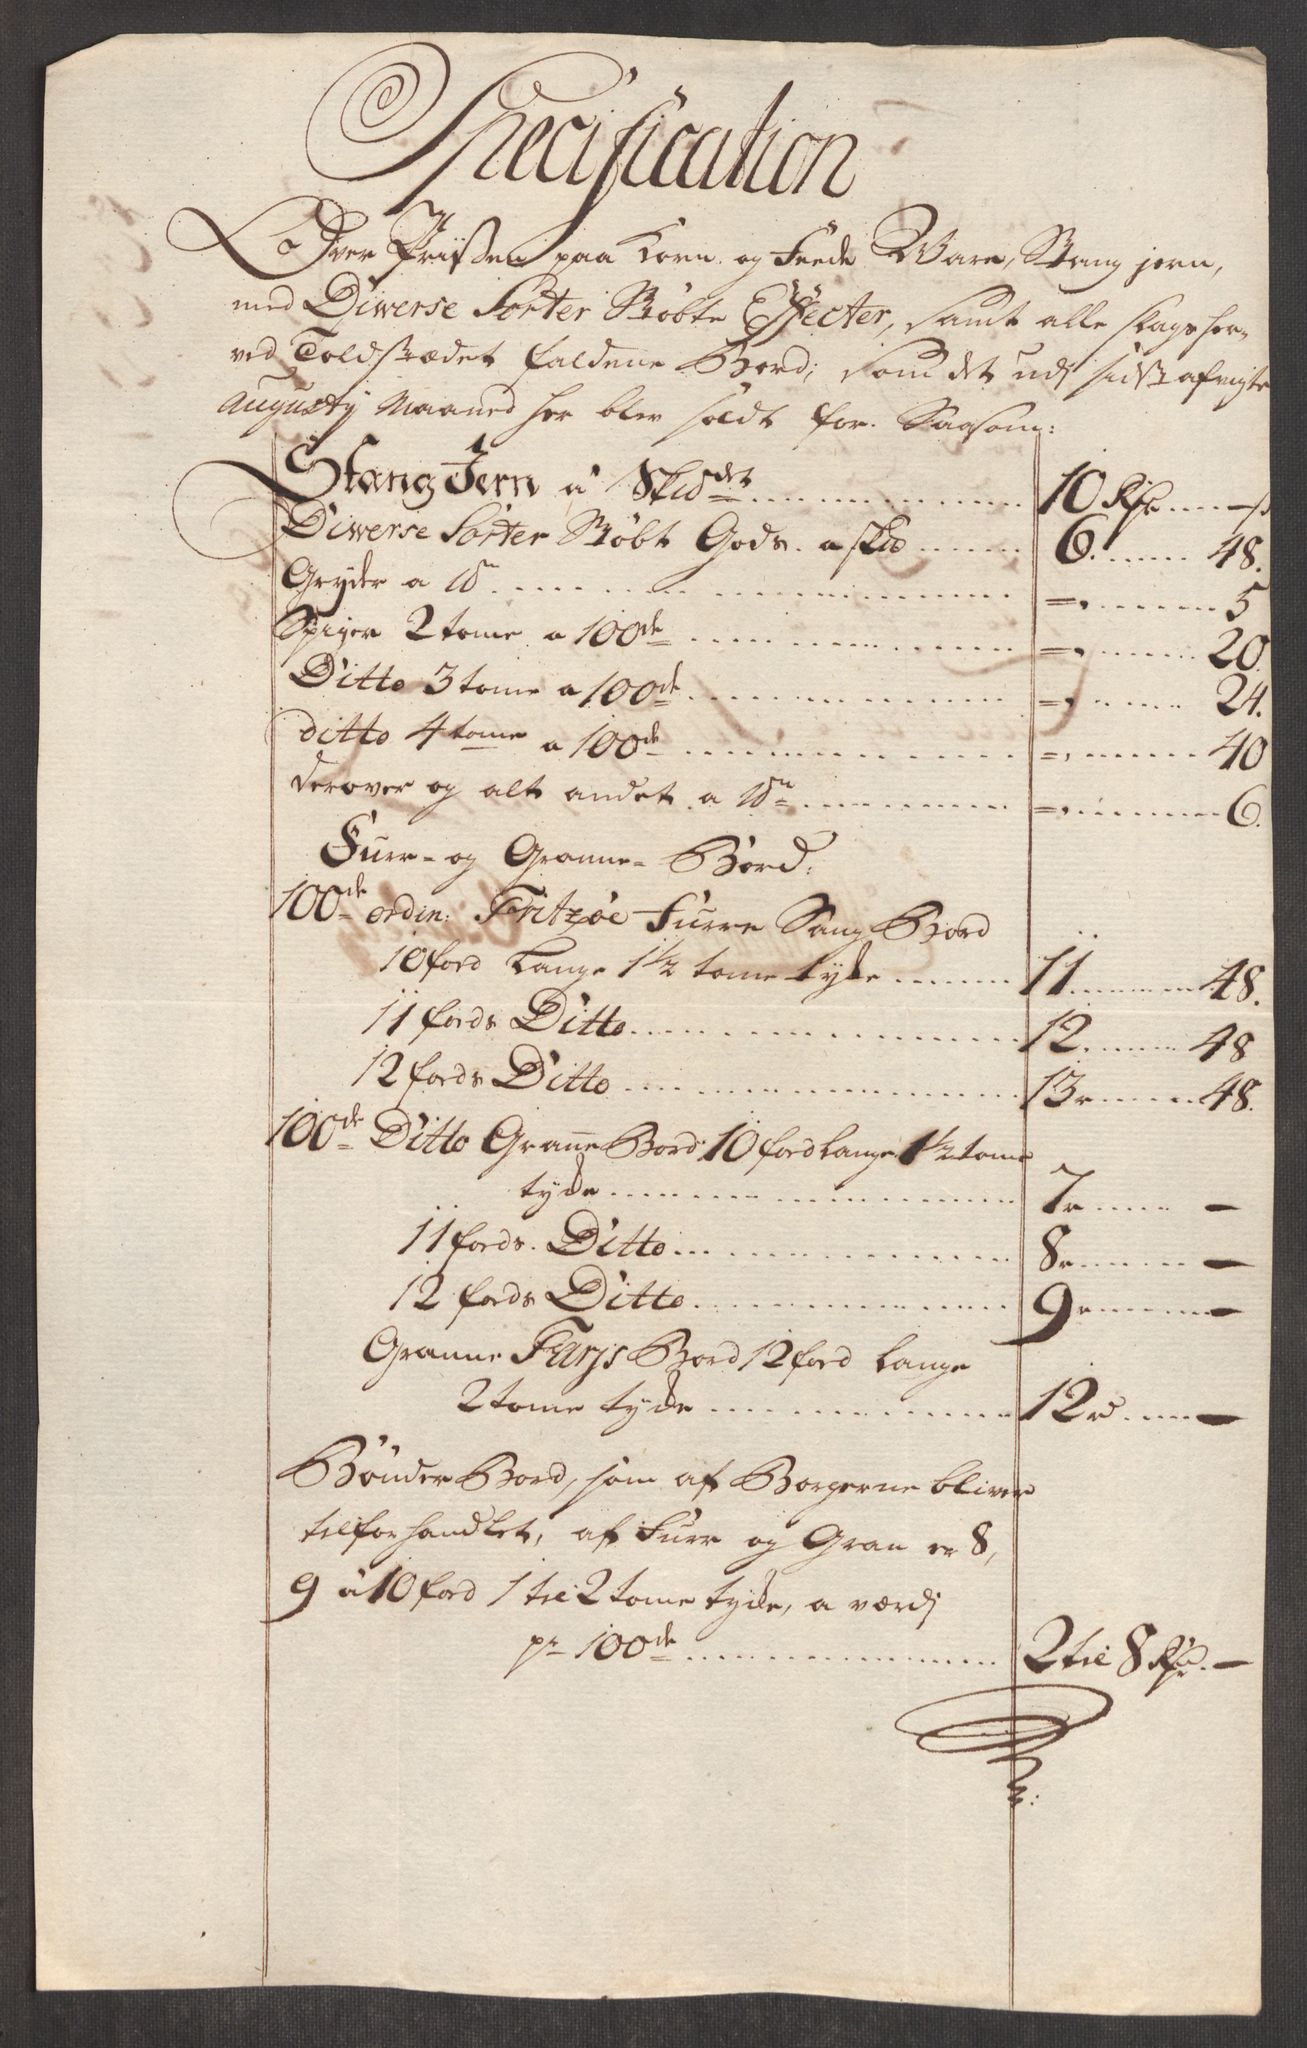 Specification
Over Prissen paa Korn og Feede Ware, Stang jern,
med Diwerse Sorter Støbte Effecter, samt alle slags her-
ved Toldstædet faldene Bord; som det udj sidst afvigte
Augustij Maaned her blev soldt for. Saasom:
Stang Jern á 1 Skld det 10 Rdr — s
Diwerse Sorter Støbt Gods. a skld 6. 48.
Gryder a 1 = 5
Spiger 2 tome a 100de = 20.
Ditto 3 tome a 100de = 24.
ditto 4 tome a 100de = 40
derover og alt andet a 1 = 6.
Furr- og Granne- Bord:
100de ordin: Fritzøe Furre Saug Bord
10 fod Lange 1½ tome tyke 11 48.
11 fods Ditto 12 48
12 fods Ditto 13 48.
100de Ditto Granne Bord 10 fod Lange 1½ tome
tyke 7 —
11 fods. Ditto 8 —
12 fods Ditto 9 —
Granne Bord 12 fod Lange
2 tome tyke 12 —
Bønder Bord, som af Borgerne bliver
tilforhandlet, af Furr og Gran er 8,
9 á 10 fod 1 til 2 tome tyke, a værdj
pr 100de 2 til 8 Rdr. —